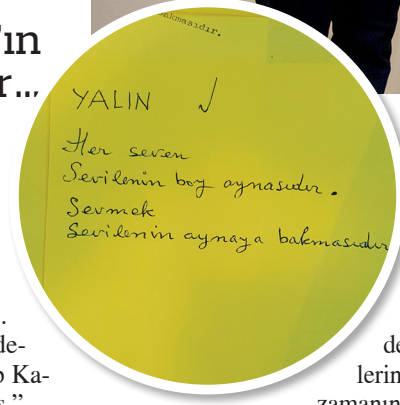 'ın
r...
bakmasıdır.
YALIN √
Her seven
Sevilenin boy aynasıdır.
Sevmek
Sevilenin aynaya bakmasıdır
.
de-
o Ka-
s."
de
lerin
zamanın